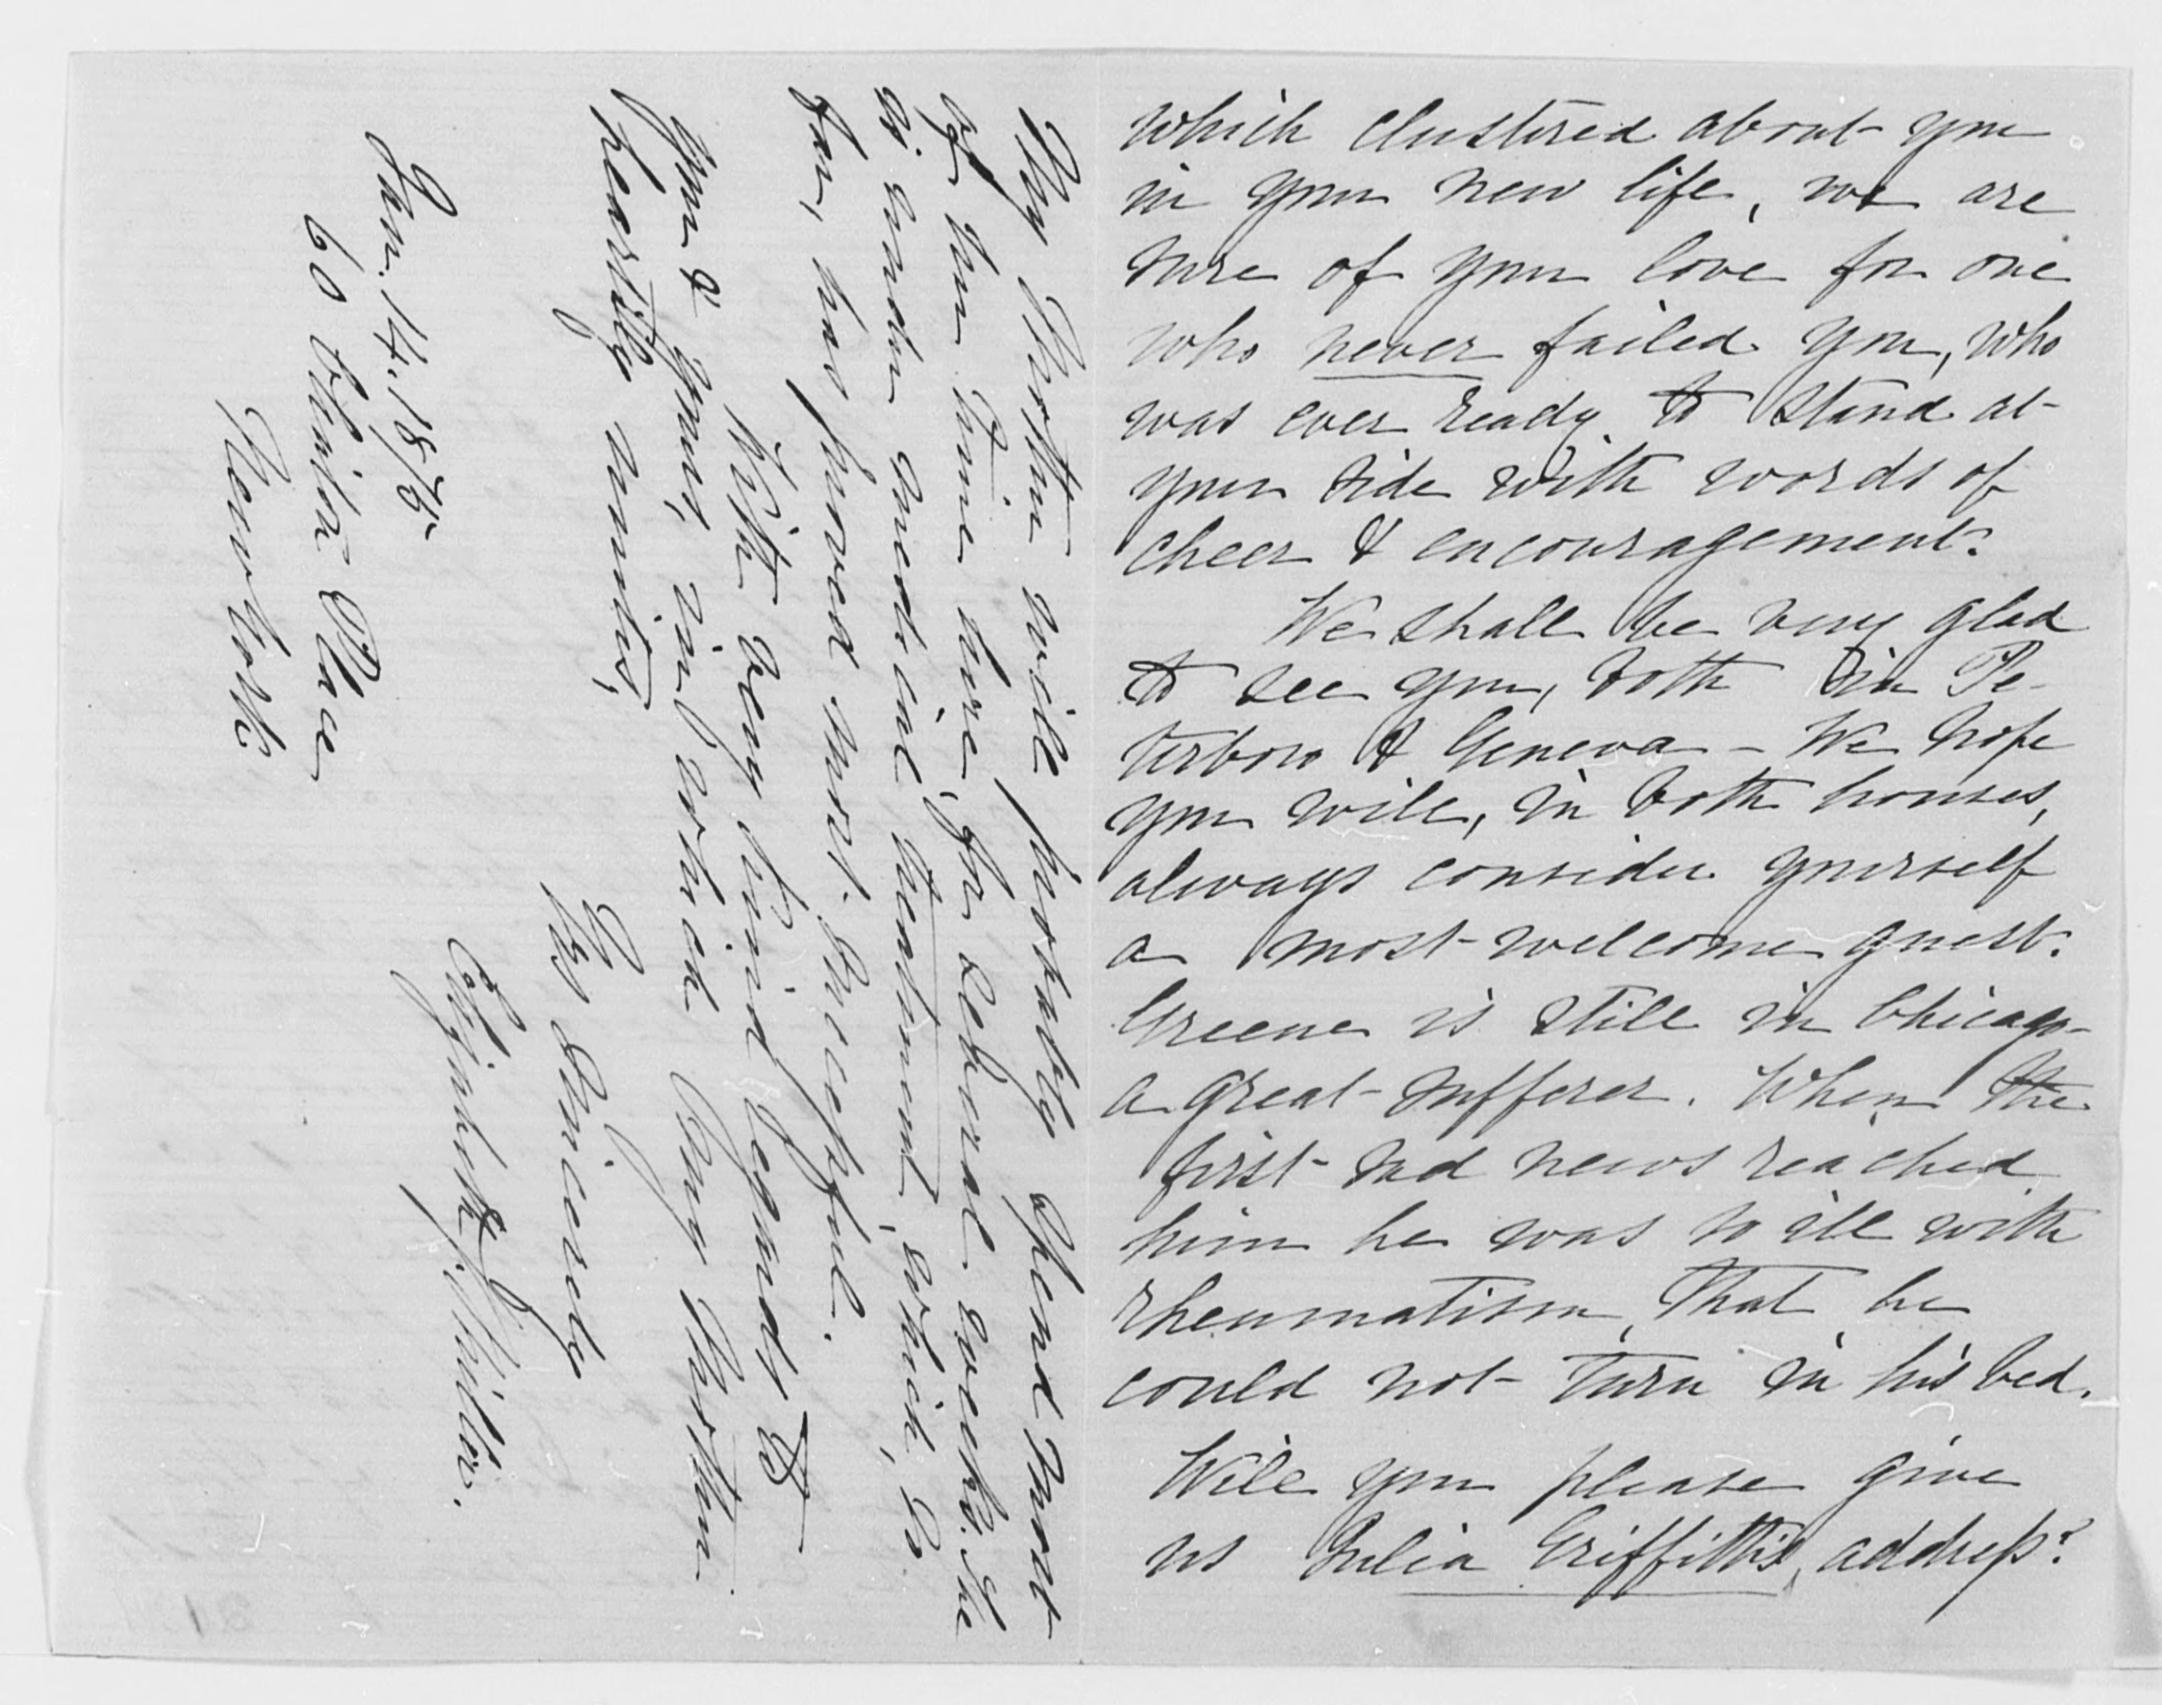 which clustered about you
in your new life, we are
sure of your love for one
who never failed you, who
was ever ready to stand at
your side with words of
cheer & encouragement.
We shall be very glad
to see you, both in Pe-
terboro & Geneva - We hope
you will, in both houses,
always consider yourself
a most welcome guest.
Greene is still in Chicago -
a great sufferer. When the
first sad news reached
him he was so ill with
rheumatism, that he
could not turn in his bed.
Will you please give
us Julia Griffith's address?
My Mother will probably spend most
of her time here, for several weeks. She
is under medical treatment, which, so
far, has proved most successful.
With very kind regards to
you & yours, in which my Mother
heartily unites,
Yrs sincerely
Elizabeth S. Miller.
Jan. 14. 1875
60 Clinton Place
New York.